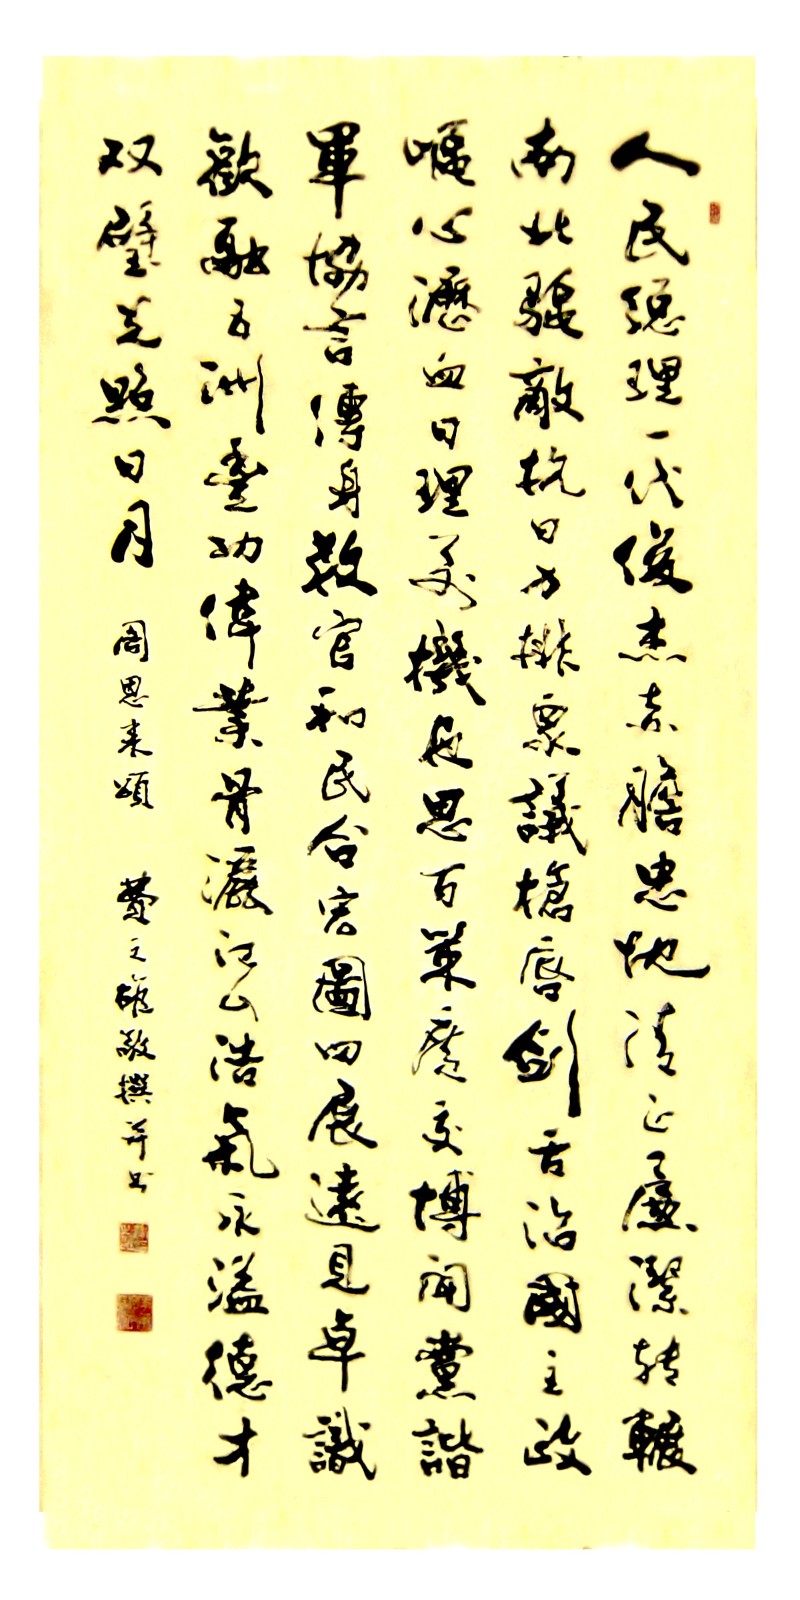 人民總理一代俊杰赤膽忠忱清正廉潔转輾
南北驅敵抗日力排衆議槍唇劍舌治國主政
嘔心瀝血日理萬機夜思百策廣交博聞黨諧
軍協言傳身教官和民合宏圖四展遠見卓識
歡融五洲豐功偉業骨灑江山浩氣永溢德才
双璧光照日月 周恩来頌 費之雄敬撰并书